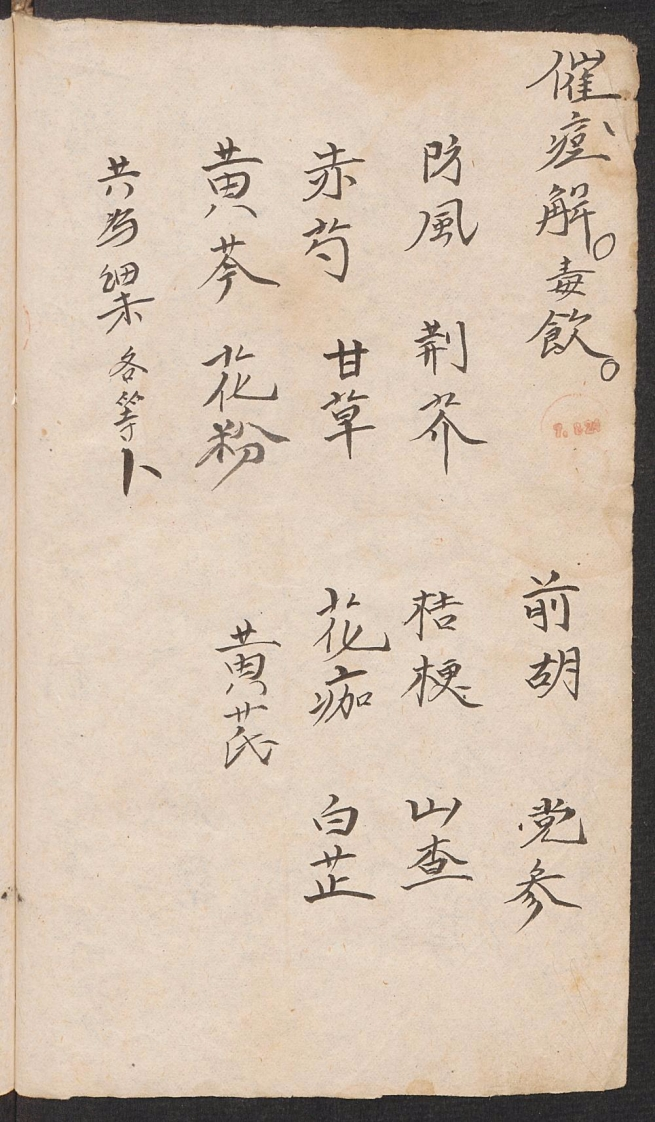 催痘解。毒飲。 前胡 党参
防風 荆芥 桔梗 山查
赤芍 甘草 花痂 白芷
黄芩 花粉 黄芪
共為細末各等卜